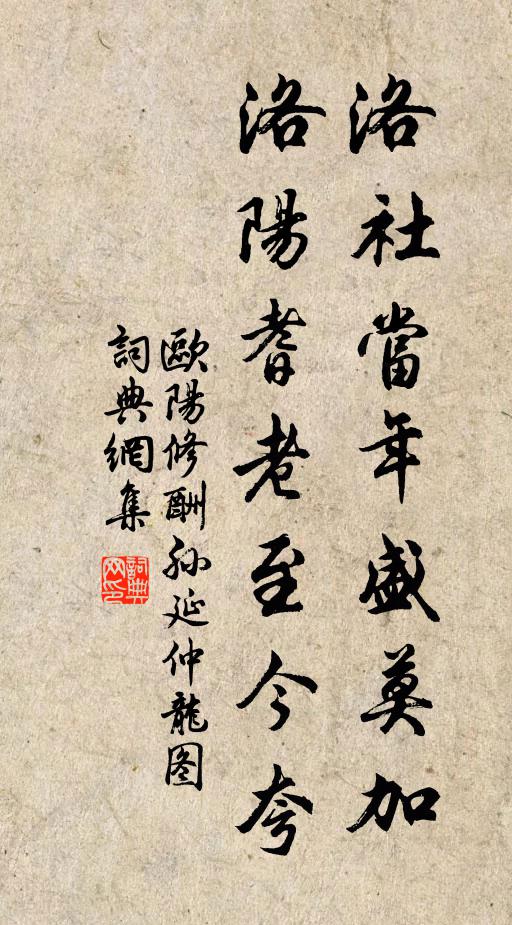 洛社當年盛莫加
洛陽耆老至今夸
歐陽修酬孙延仲龍图
詞典網集
詞典网印